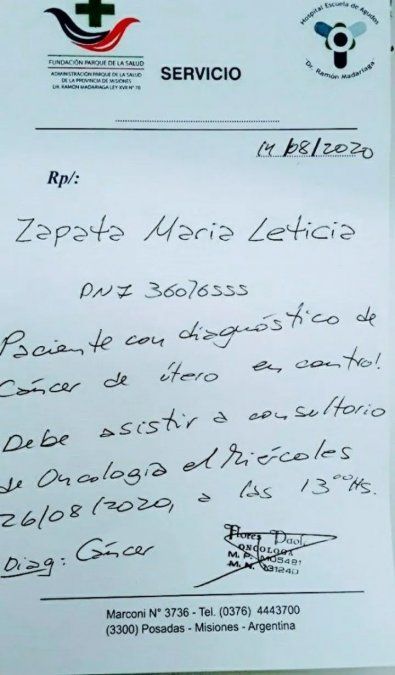 FUNDACIÓN PARQUE DE LA SALUD
ADMINISTRACIÓN PARQUE DE LA SALUD
DE LA PROVINCIA DE MISIONES
DR. RAMÓN MADARIAGA LEY XVII Nº 70
Hospital Escuela de Agudos
Dr. Ramón Madariaga
SERVICIO
14/08/2020
Rp/:
Zapata Maria Leticia
DNI 36076555
Paciente con diagnóstico de
Cáncer de útero en control.
Debe asistir a consultorio
de Oncologia el Miércoles
26/08/2020, a las 13⁰⁰Hs.
Diag: Cáncer
Flores
ONCOLOGA
M. P.
M. N.
Marconi N° 3736 - Tel. (0376) 4443700
(3300) Posadas - Misiones - Argentina